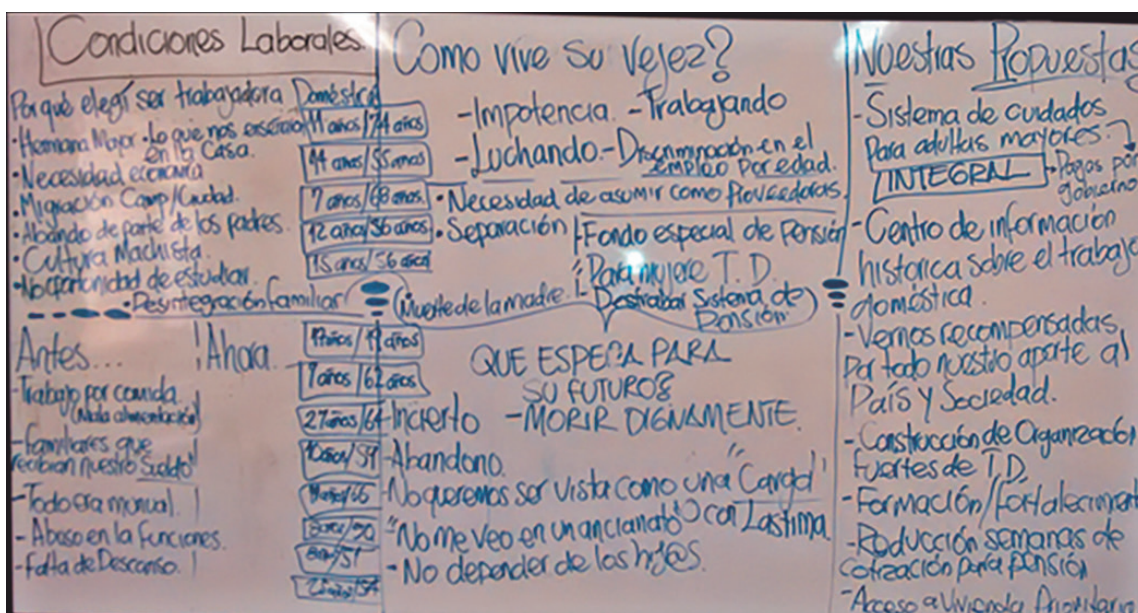 Condiciones Laborales.
Por qué elegí ser trabajadora Doméstica
• Hermana Mayor - Lo que nos enseñaron
en la Casa.
• Necesidad economía
• Migración Camp/Ciudad.
• Abando de parte de los padres.
• Cultura Machista.
• No oportunidad de estudiar.
• Desintegración familiar
11 años/74 años
14 años/55 años
7 años/68 años.
12 años/56 años.
15 años/56 años
Antes...
- Trabajo por comida
(Mala alimentación)
- Familiares que
recibian nuestro Sueldo"
- Todo era manual.
- Abaso en la funciones.
- Falta de Descanso.
Ahora
años
7 años/62 años
27 años/64
Como vive su vejez?
- Impotencia. - Trabajando
- Luchando. - Discriminación en el
empleo por edad.
• Necesidad de asumir como Proveedoras.
• Separación
Fondo especial de Pensión
"Para mujere T.D.
(Muerte de la madre.
- Destrabar Sistema de
Pensión
QUE ESPERA PARA
SU FUTURO?
- Incierto - MORIR DIGNAMENTE.
- Abandono.
- No queremos ser vista como una "Carga"
O con Lastima
"No me veo en un ancianato"
- No depender de los hij@s.
Nuestras Propuestas
- Sistema de cuidados
Para adultas mayores.
INTEGRAL
- Pagas por
gobierno
- Centro de información
historica sobre el trabajo
doméstica.
- Vernos recompensadas,
Por todo nuestro aporte al
País y Sociedad.
- Construcción de Organización
fuertes de T.D.
- Formación/Fortalecimient
- Reducción semanas de
cotización para pensión
- Acceso a Vivienda Prioritaria